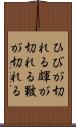 ひびが切
れる皹が
切れる皸
が切れる